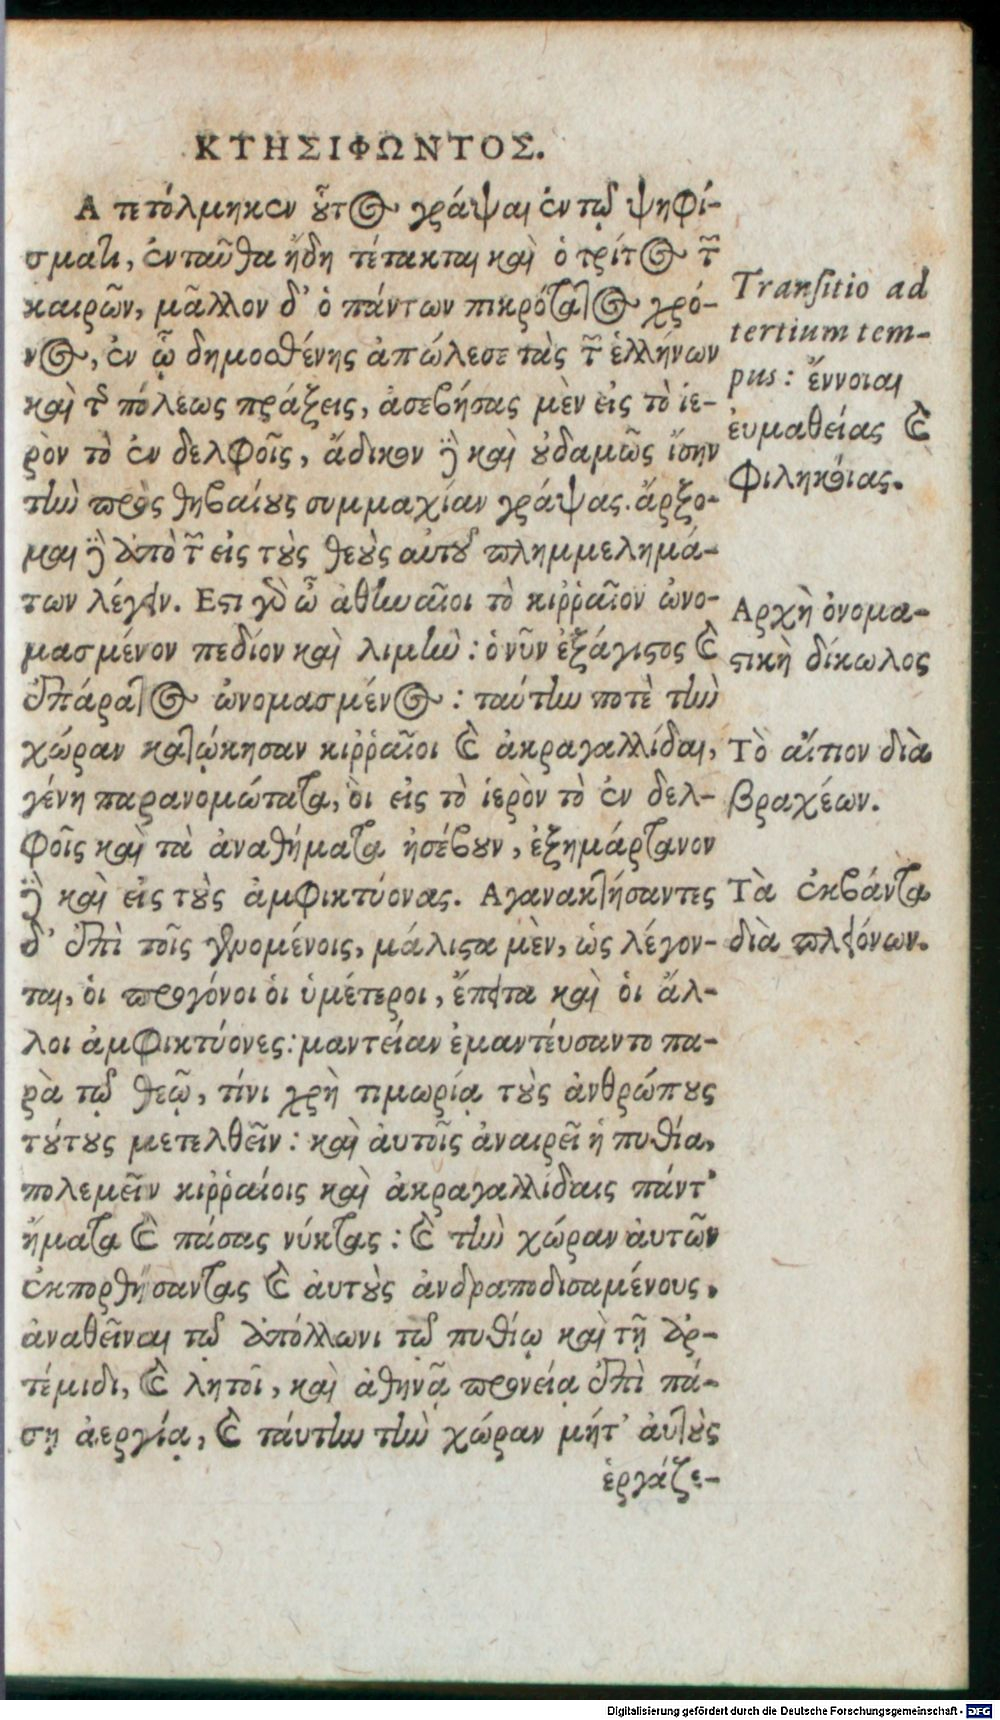 ΚΤΗΣΙΦΩΝΤΟΣ.
Α πετόλμηκεν οὗτος γράψαι ἐν τῷ ψηφί-
σματι, ἐνταῦθα ἤδη τέτακται καὶ ὁ τρίτος τῶν
καιρῶν, μᾶλλον δ' ὁ πάντων πικρότατος χρό-
νος, ἐν ᾧ δημοσθένης ἀπώλεσε τὰς τῶν ἑλλήνων
καὶ τῆς πόλεως πράξεις, ἀσεβήσας μὲν εἰς τὸ ἱε-
ρὸν τὸ ἐν δελφοῖς, ἄδικον δὲ καὶ οὐδαμῶς ἴσην
τὴν πρὸς θηβαίους συμμαχίαν γράψας. ἄρξο-
μαι δὲ ἀπὸ τῶν εἰς τοὺς θεοὺς αὐτοῦ πλημμελημά-
των λέγειν. Εστι γὰρ ὦ ἀθηναῖοι τὸ κιῤῥαῖον ὠνο-
μασμένον πεδίον καὶ λιμὴν: ὁ νῦν ἐξάγιστος καὶ
ἐπάρατος ὠνομασμένος: ταύτην ποτὲ τὴν
χώραν κατῴκησαν κιῤῥαῖοι καὶ ἀκραγαλλίδαι,
γένη παρανομώτατα, ὁι εἰς τὸ ἱερὸν τὸ ἐν δελ-
φοῖς καὶ τὰ ἀναθήματα ἠσέβουν, ἐξημάρτανον
δὲ καὶ εἰς τοὺς ἀμφικτύονας. Αγανακτήσαντες
δ' ἐπὶ τοῖς γενομένοις, μάλιστα μὲν, ὡς λέγον-
ται, ὁι προγόνοι ὁι ὑμέτεροι, ἔπειτα καὶ ὁι ἄλ-
λοι ἀμφικτύονες: μαντείαν ἐμαντέυσαντο πα-
ρὰ τῷ θεῷ, τίνι χρὴ τιμωρίᾳ τοὺς ἀνθρώπους
τούτους μετελθεῖν: καὶ ἀυτοῖς ἀναιρεῖ ἡ πυθία,
πολεμεῖν κιῤῥαίοις καὶ ἀκραγαλλίδαις πάντ'
ἤματα καὶ πάσας νύκτας: καὶ τὴν χώραν ἀυτῶν
ἐκπορθήσαντας καὶ ἀυτοὺς ἀνδραποδισαμένους,
ἀναθεῖναι τῷ ἀπόλλωνι τῷ πυθίῳ καὶ τῇ ἀρ-
τέμιδι, καὶ λητοῖ, καὶ ἀθηνᾷ προνείᾳ ἐπὶ πά-
σῃ ἀεργίᾳ, καὶ ταύτην τὴν χώραν μήτ' ἀυτοὺς
ἐργάζε-
Transitio ad
tertium tem-
pus: ἔννοιαι
ἐυμαθείας καὶ
φιληκοΐας.
Αρχὴ ὀνομα-
στικὴ δίκωλος
Τὸ αἴτιον διὰ
βραχέων.
Τὰ ἐκβάντα
διὰ πλειόνων.
Digitalisierung gefördert durch die Deutsche Forschungsgemeinschaft - DFG